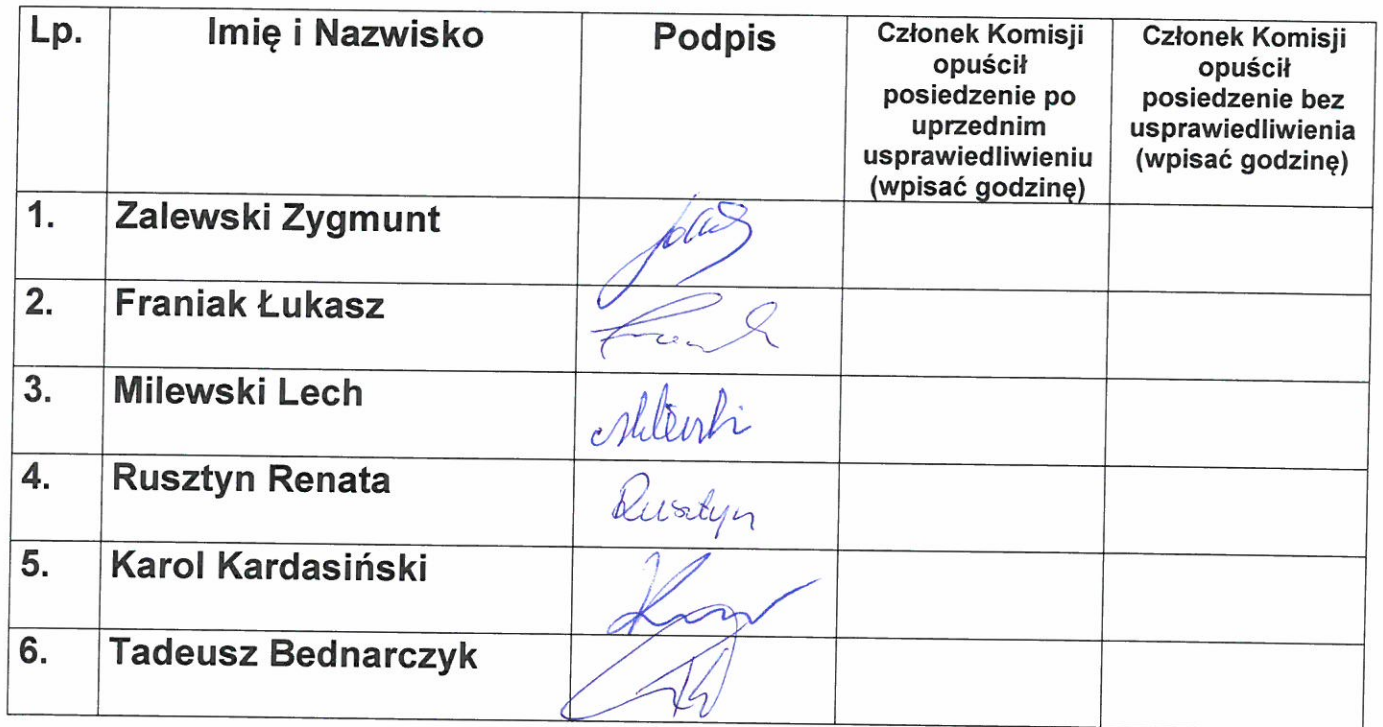 Lp.
Imię i Nazwisko
Podpis
Członek Komisji
opuścił
posiedzenie po
uprzednim
usprawiedliwieniu
(wpisać godzinę)
Członek Komisji
opuścił
posiedzenie bez
usprawiedliwienia
(wpisać godzinę)
1. Zalewski Zygmunt
2. Franiak Łukasz
3. Milewski Lech
Milewski
4. Rusztyn Renata
Rusztyn
5. Karol Kardasiński
6. Tadeusz Bednarczyk